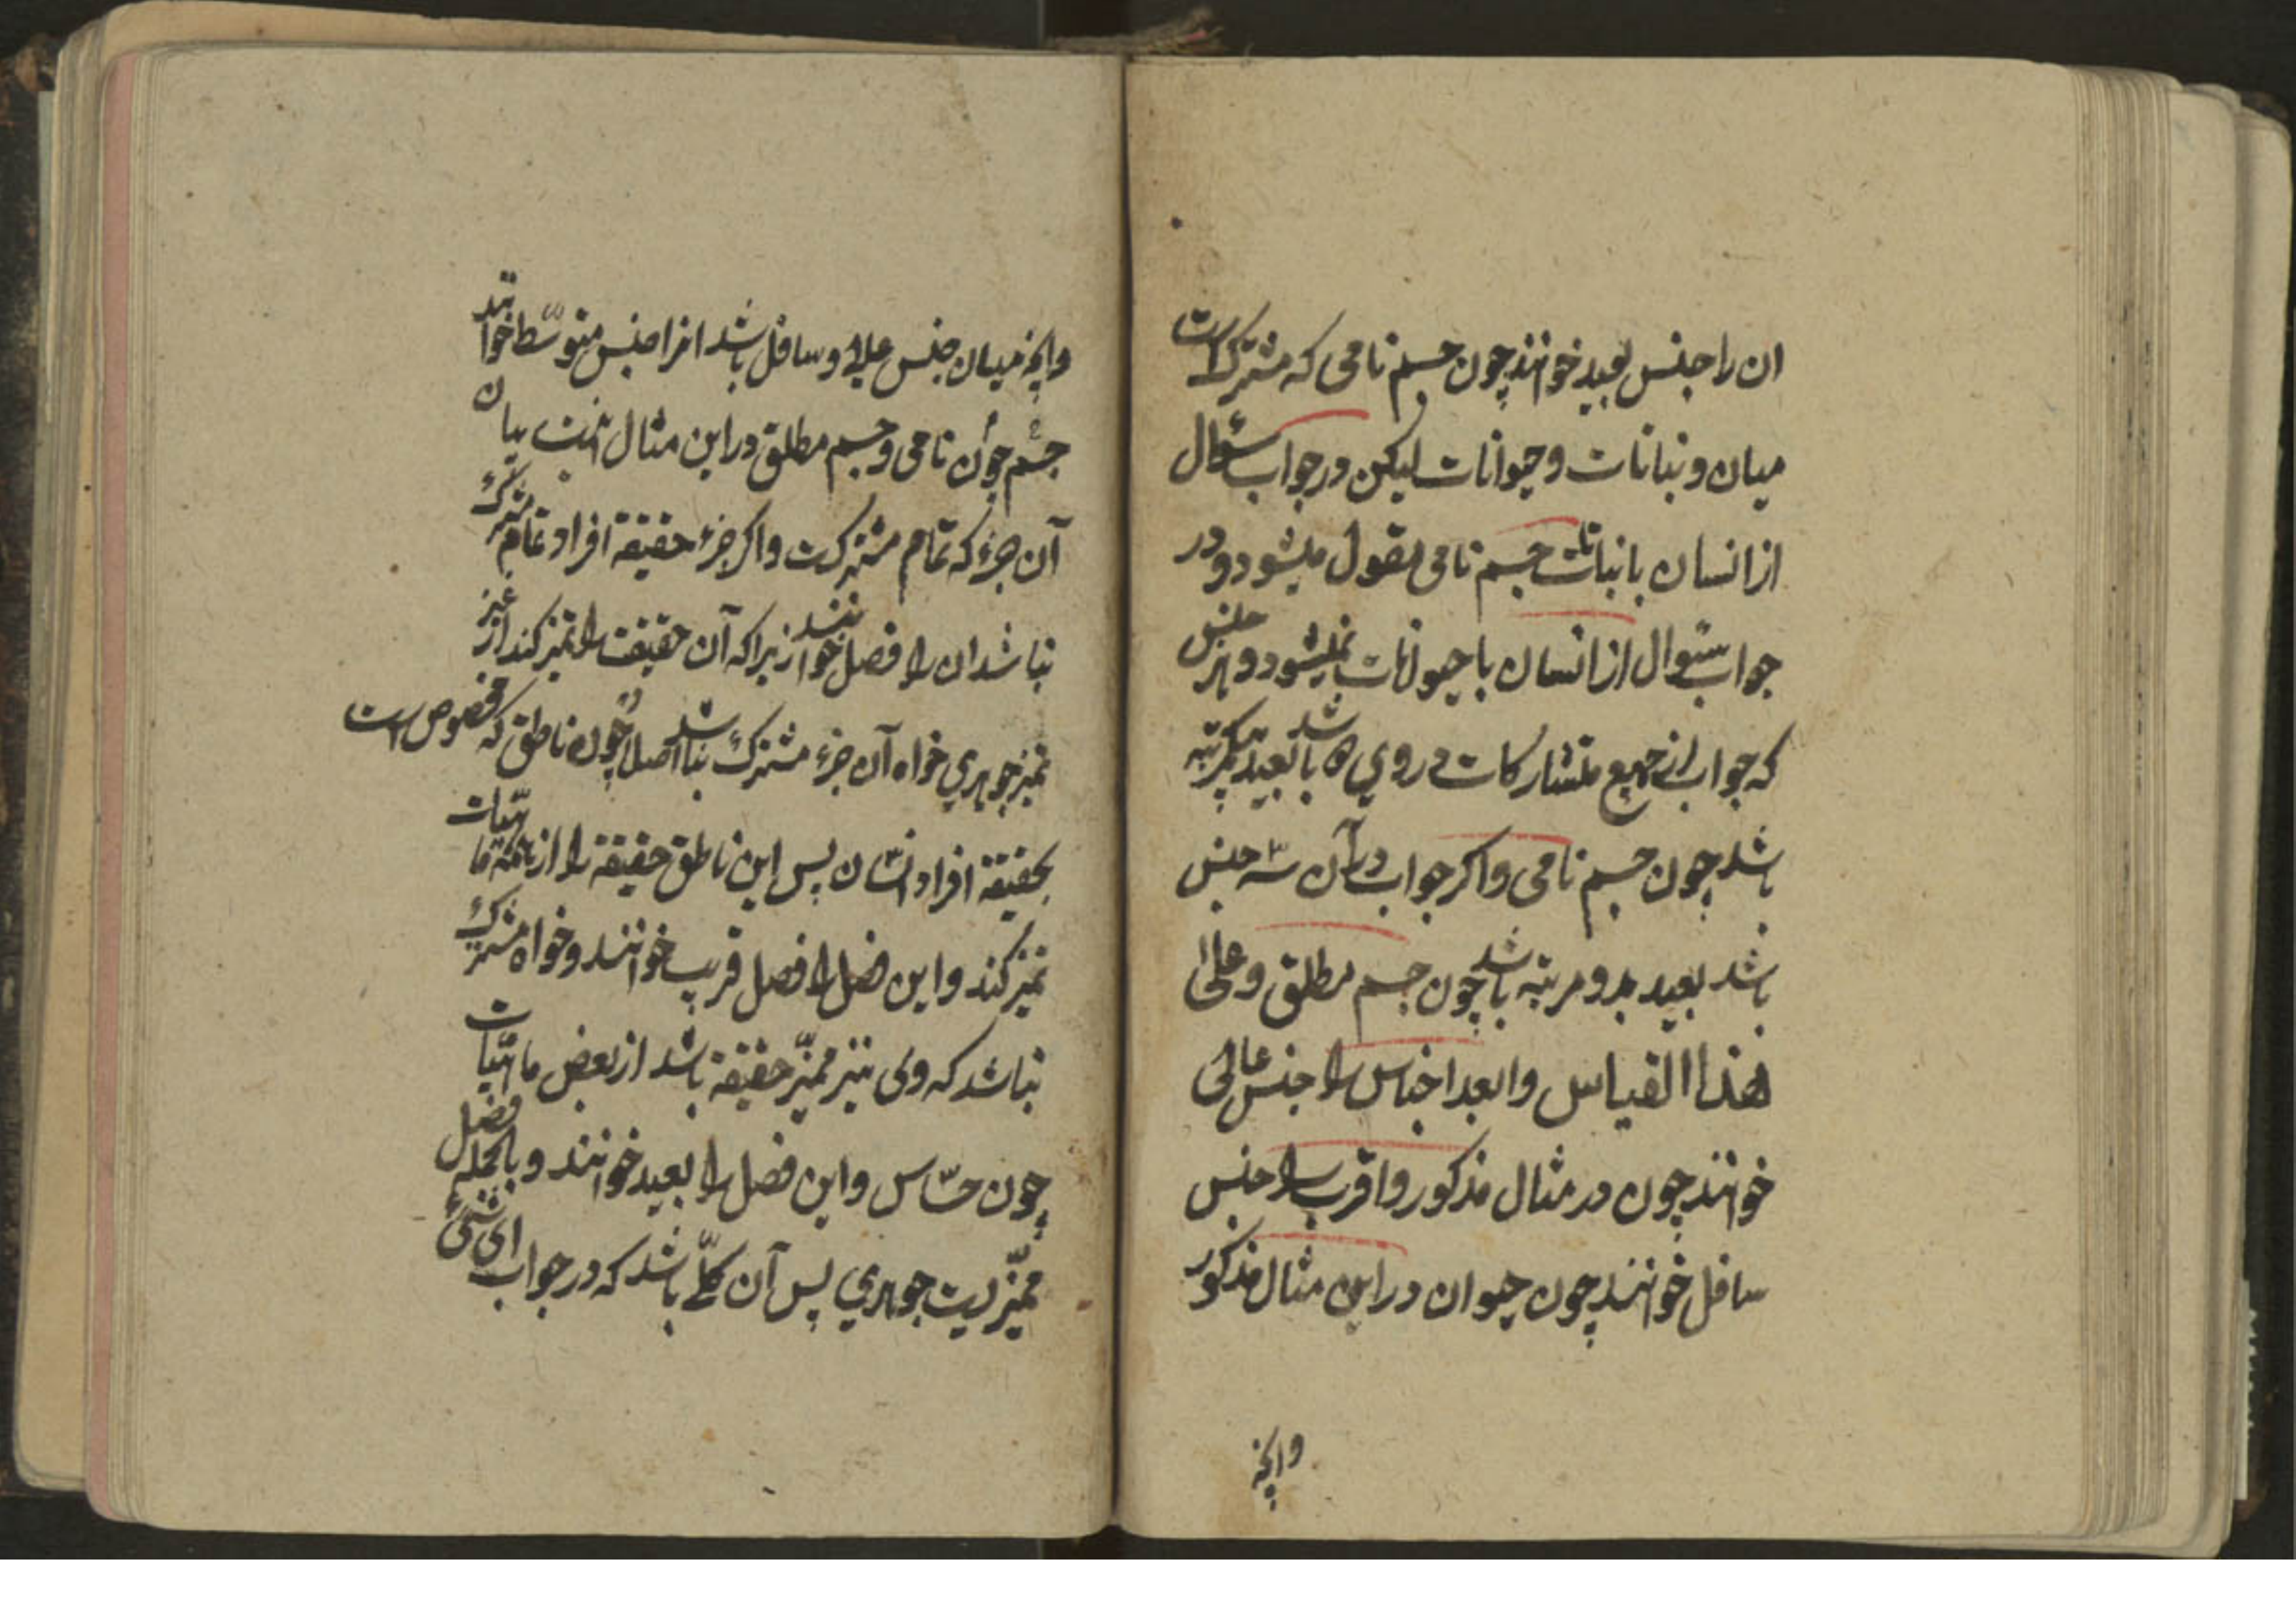 ان را جنس بعید خوانند چون جسم نامی که مشترکست
میان و نباتات و حیوانات لیکن در جواب سؤال
از انسان با نباتات جسم نامی مقول میشود و در
جواب سئوال از انسان با حیوانات نمیشود و هر جنس
که جواب از جمیع متشارکات در وی باشد بعید بیکمرتبه
باشد چون جسم نامی و اکر جواب در آن سه جنس
باشد بعید بدو مرتبه باشد چون جسم مطلق و علی
هذا القیاس و ابعد اجناس را جنس عالی
خوانند چون در مثال مذکور و اقرب را جنس
سافل خوانند چون حیوان در این مثال مذکور
وانچه
وانچه میان جنس عالی و سافل باشد انرا جنس متوسّط خوانند
جسم چون نامی و جسم مطلق در این مثال اینست بیان
آن جزء که تمام مشترکست و اکر جزء حقیقة افراد تمام مشترک
نباشد ان را فصل خوانند زیرا که آن حقیقت را تمیز کند از غیر
تمیز جوهری خواه آن جزء مشترک نباشد اصلا چون ناطق که مخصوص است
بحقیقة افراد انسان پس این ناطق حقیقة را از همه ماهیّات
تمیز کند و این فصل را فصل قریب خوانند و خواه مشترک
نباشد که وی نیز ممیّز حقیقة باشد از بعض ماهیّات
چون حسّاس و این فصل را بعید خوانند و بالجمله فصل
ممیّزیست جوهری پس آن کلّی باشد که در جواب ای شیء